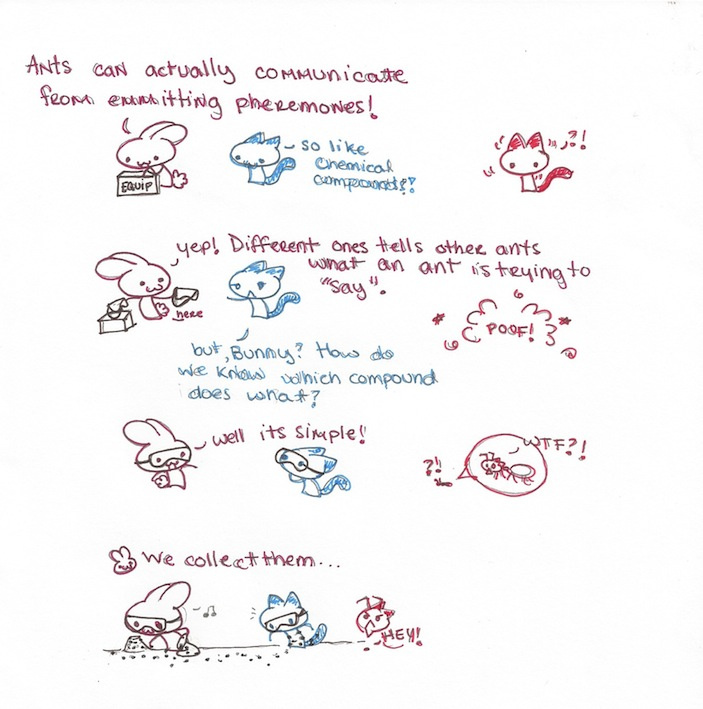 Ants can actually communicate
from emmitting pheremones!
EQUIP
so like
chemical
compounds?
?!
yep! Different ones tells other ants
what an ant is trying to
"say".
here
POOF!
but, Bunny? How do
we know which compound
does what?
well its simple!
WTF?!
?!!
We collect them...
HEY!